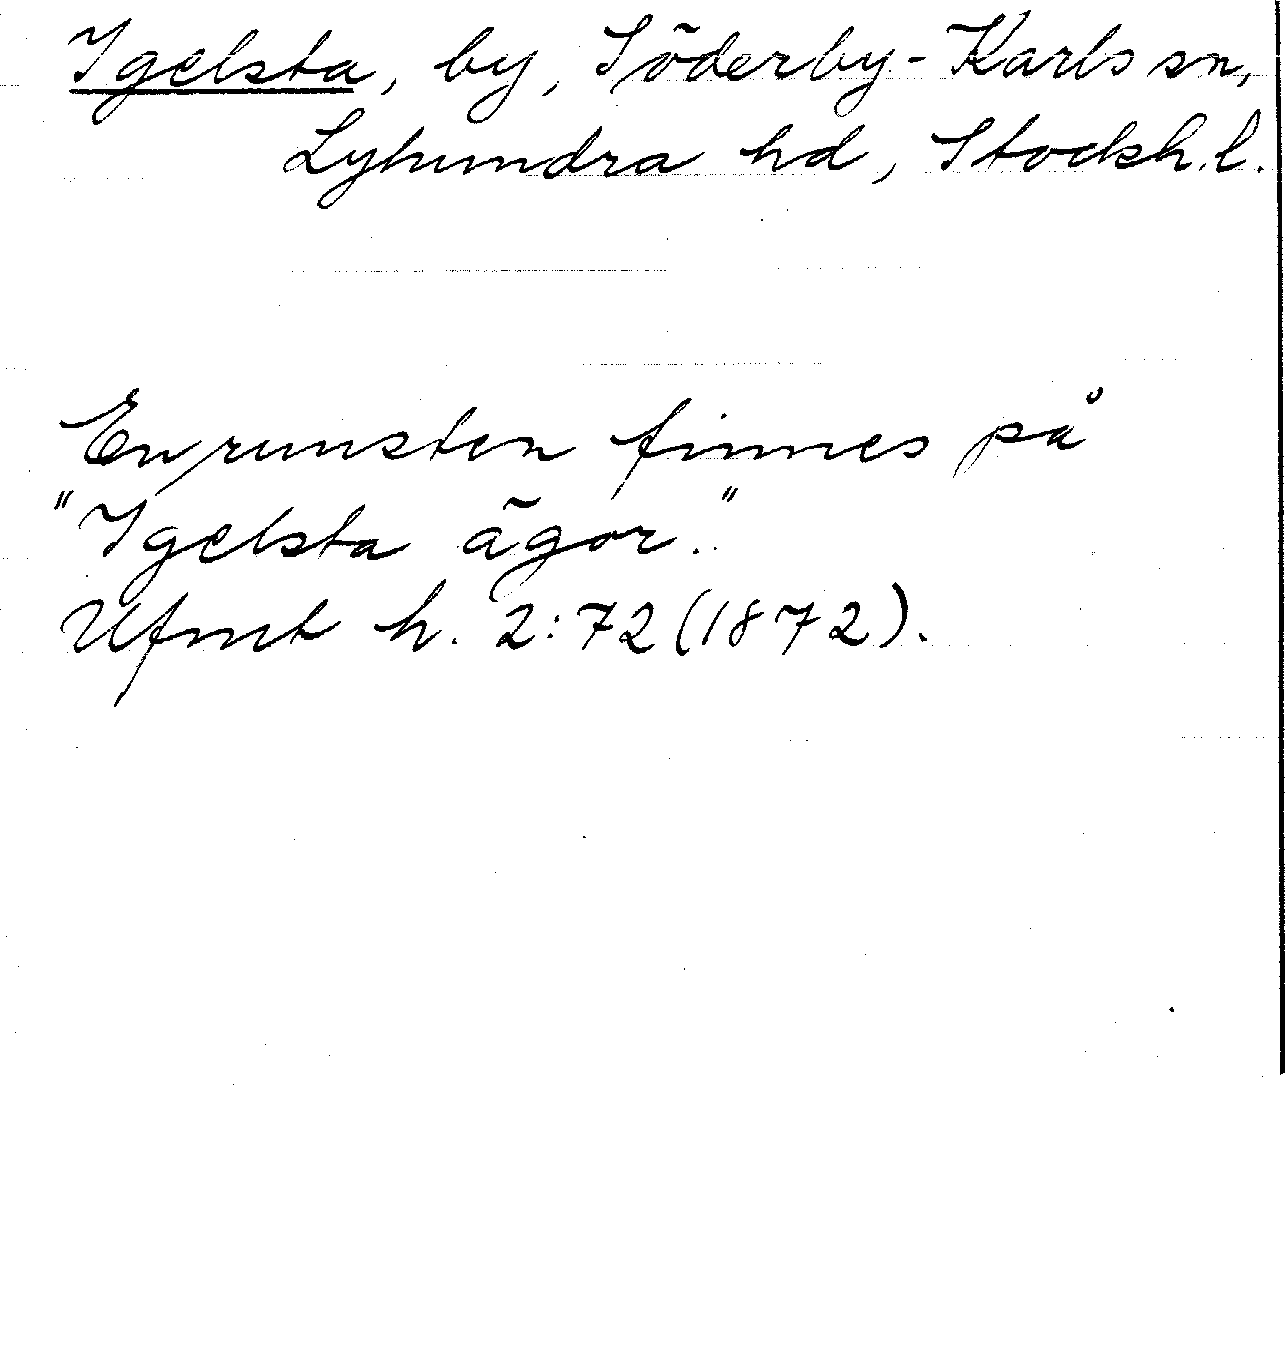 Igelsta, by, Söderby-Karls sn,
Lyhundra hd, Stockh.l.
En runsten finnes på
"Igelsta ägor."
Ufmt h. 2:72 (1872).